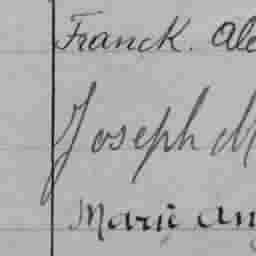 Franck. Ale
Joseph M
Marii An